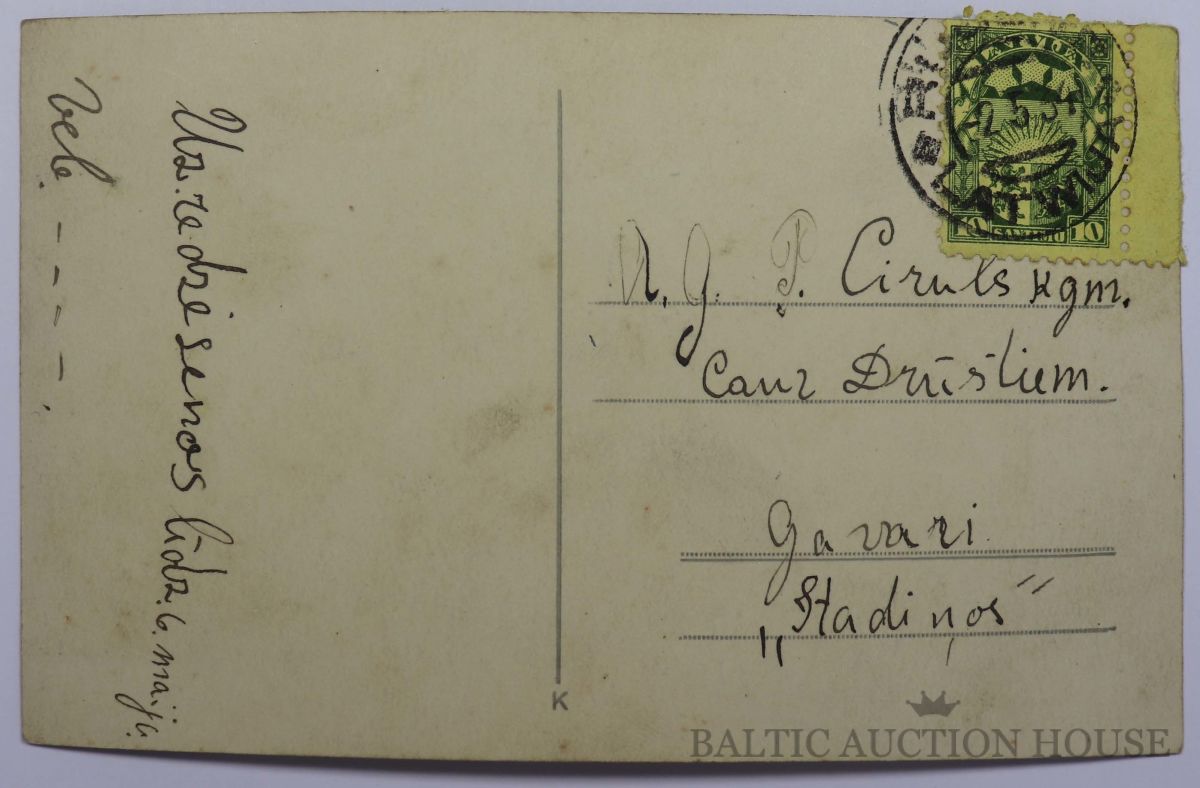 Uz redzēšenos līdz 6. maijc.
Velc - - - - .
LATVIJA
2.5.3
10 SANTIMU 10
A. G. P. Ciruls kgm.
Caur Drūstiem.
Gavari
„Stadiņos"
K
BALTIC AUCTION HOUSE